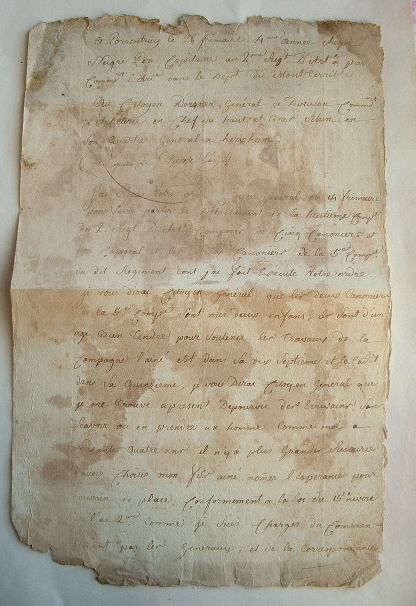 a Porrentruy le 26 frimaire 4me année Repu
Neigre Père Capitaine au 2me Regt D'Arte a pie
Commt l'Arte dans le Dept du Mont terrible
Au Citoyen Dorsner Général de Division Commt
l'artillerie en Chef du haut et bas Rhin en
Son quartier General a herxheim
J'ai reçu Votre ordre General du 14 frimaire
pour faire partir le detachement de la huitieme Compe
du 2 Regt Composée de Cinq Canoniers et
Caporal et Canoniers de la 5me Compe
du dit Regiment dont j'ai fait Execute Votre ordre
je vous dirai Citoyen Général que les deux Canoniers
de la 5e Compe Sont mes deux enfans, ils sont d'un
age bien tendre pour soutenir les travaux de la
Campagne l'ainé est dans sa dix septieme et le Cadet
dans sa quinzieme, je vous Dirai Citoyen General que
je me trouve a present Depourvu des Ecrivains san
Scavoir ou en prendre un homme Comme moi a
soixante quatre ans il n'y a plus Grande Resource
j'avois Choisi mon fils ainé nomer l'esperance pour
de place, Conformement a la loi du 15e nivose
de l'an 2me Comme je Suis Charges du Comman-
dement par les Generaux, et de la Correspondance